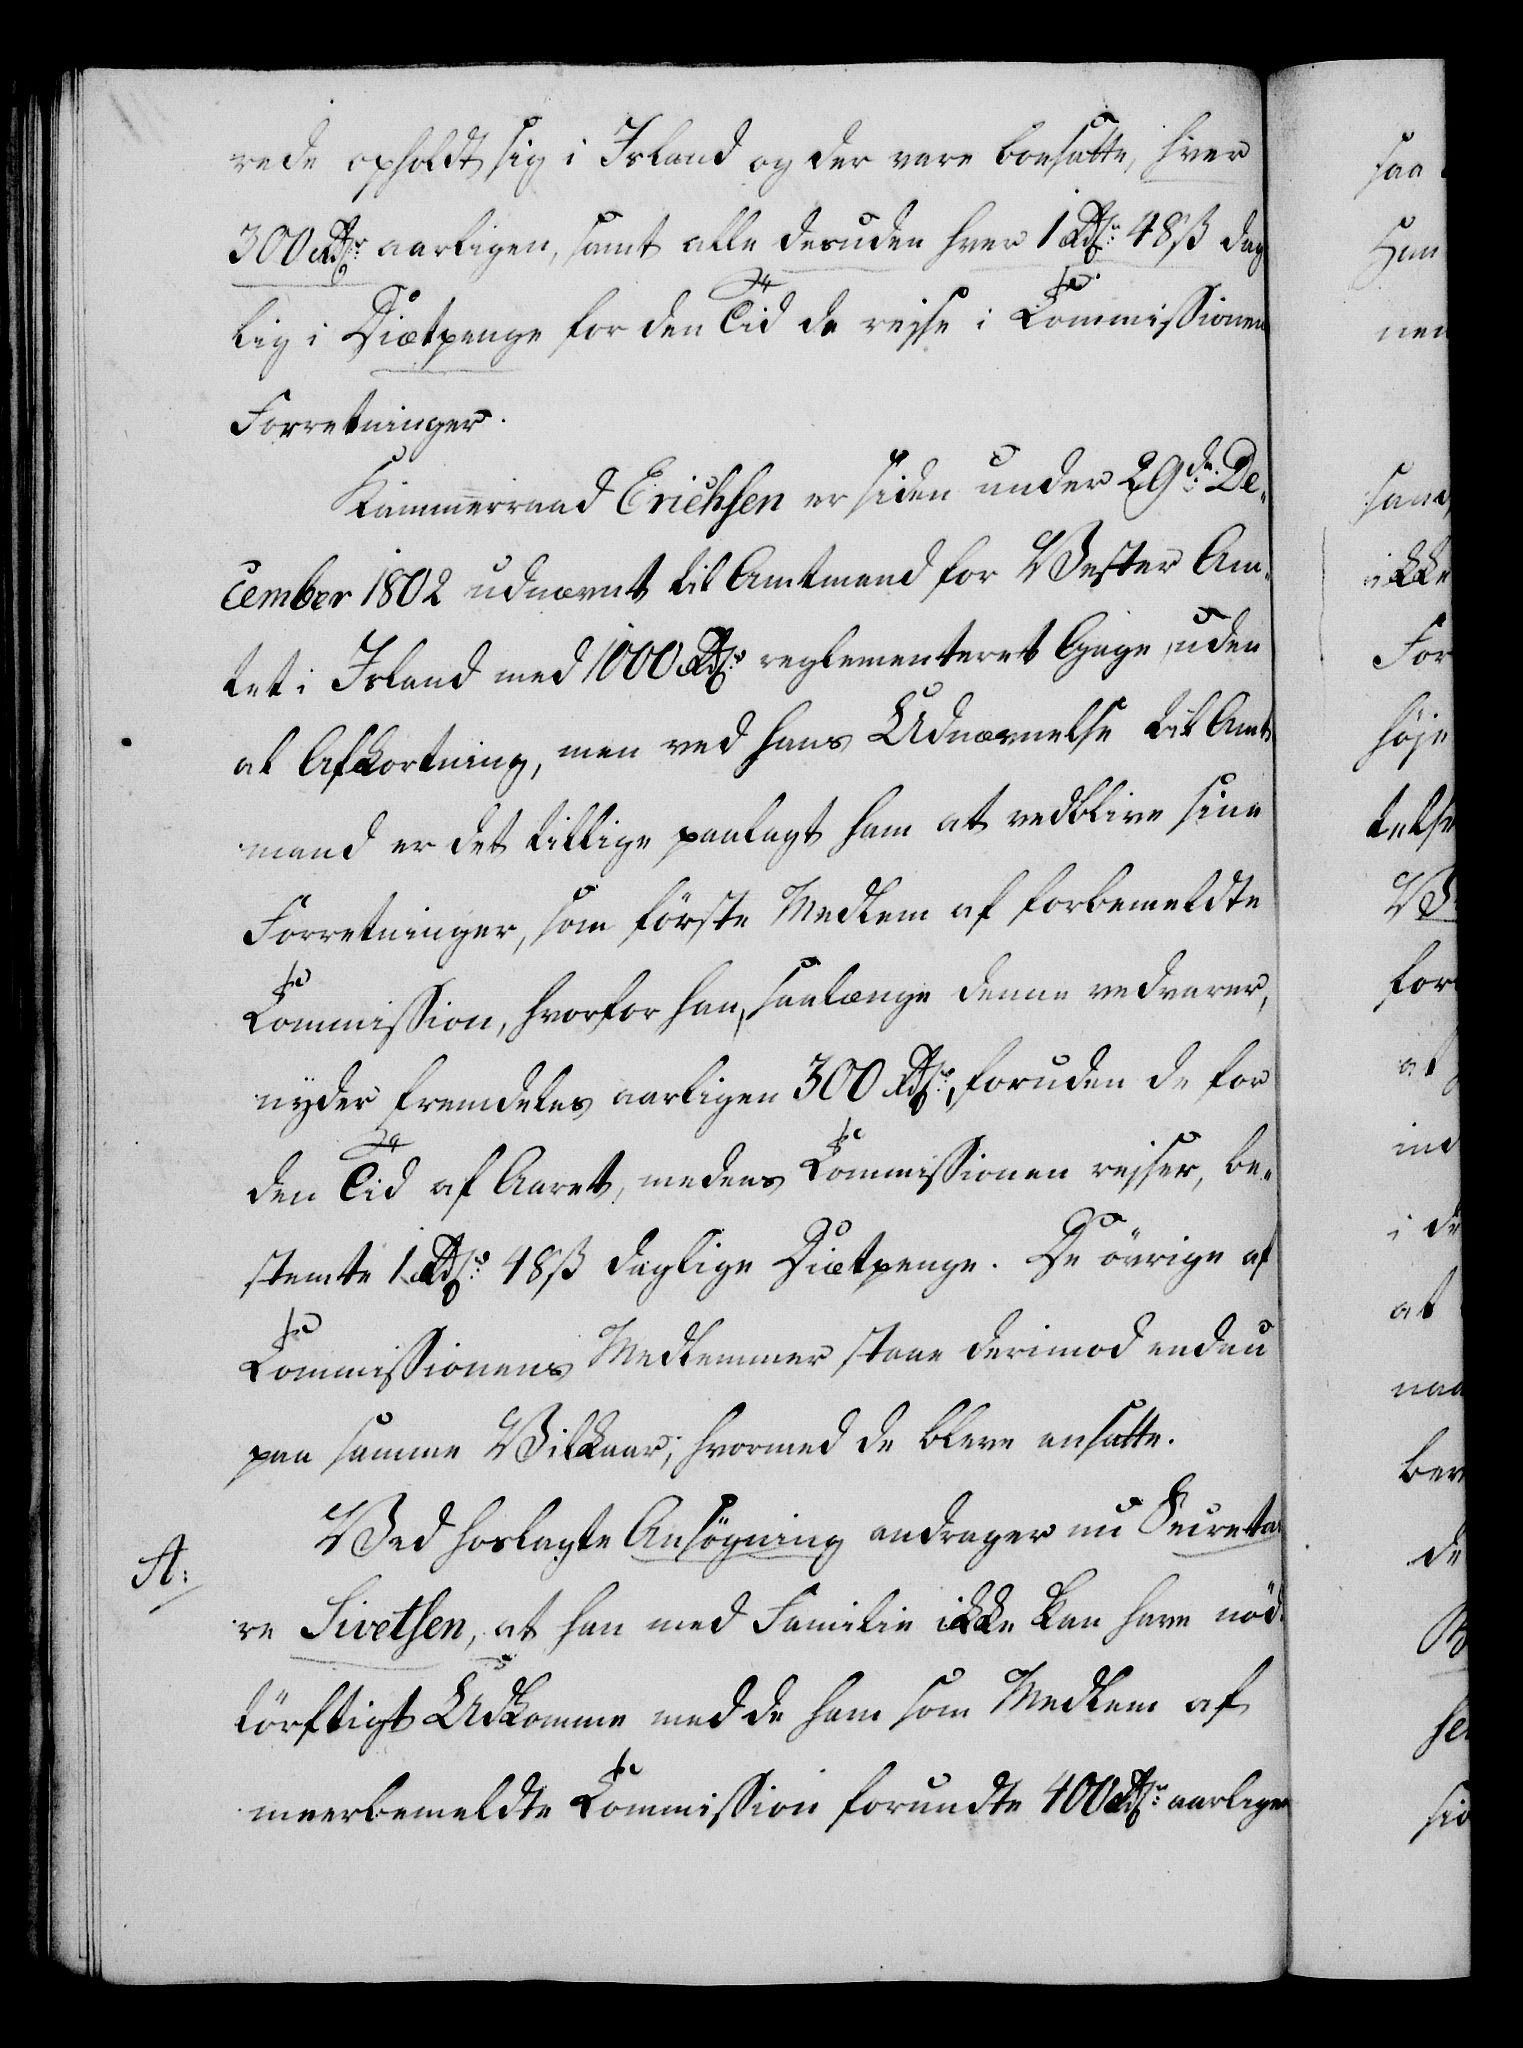 rede opholdt sig i Island og der vare boesatte, hver
300 Rdlr: aarligen, samt alle desuden hver 1 Rdlr: 48 ß dag
lig i Diætpenge for den Tid de rejse i Kommissionens
Forretninger.
Kammerraad Erichsen er siden under 29de: De„
cember 1802 udnævnt til Amtmand for Vester Am„
tet i Island med 1000 Rdlr: reglementeret Gage, uden
al Afkortning, men ved hans Udnævnelse til Amt
mand er det tillige paalagt ham at vedblive sine
Forretninger, som förste Medlem af forbemeldte
Kommission, hvorfor han, saalænge denne vedvarer,
nyder fremdeles aarligen 300 Rdlr:, foruden de for
den Tid af Aaret, medens Kommissionen rejser, be„
stemte 1 Rdlr: 48 ß daglige Diætpenge. De övrige af
Kommissionens Medlemmer staae derimod endnu
paa samme Vilkaar, hvormed de bleve ansatte.
Ved hoslagte Ansögning andrager nu Secretai
A:
re Sivetsen, at han med Familie ikke kan have nöd„
törftigt Udkomme med de ham som Medlem af
meerbemeldte Kommission forundte 400 Rdlr: aarligen
saa
Han
nen
sam
ikke
For
höje
telse
for
at
ind
i de
at
naa
ber
de